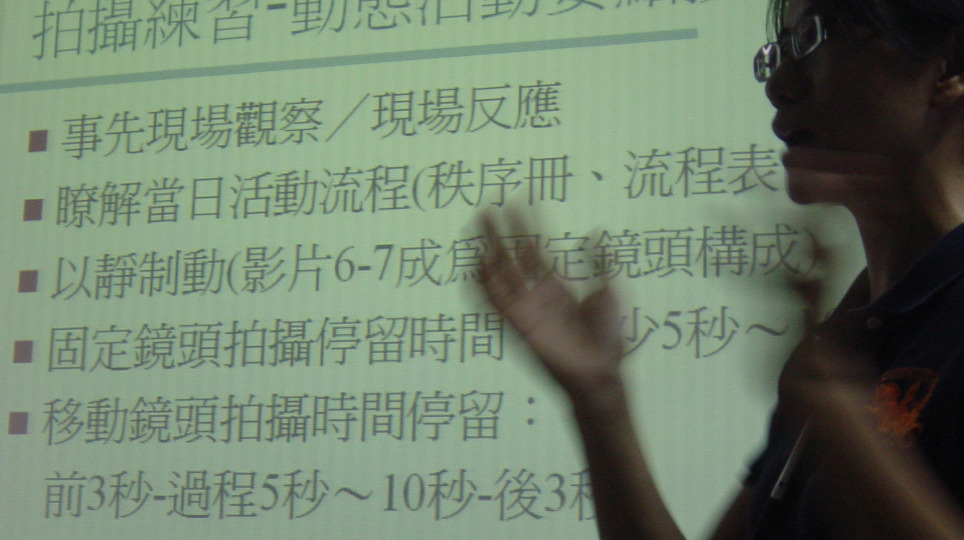 拍攝練習-動態活動要
■ 事先現場觀察／現場反應
■ 瞭解當日活動流程(秩序冊、流程表
■ 以靜制動(影片6-7成為固定鏡頭構成)
■ 固定鏡頭拍攝停留時間 少5秒～
■ 移動鏡頭拍攝時間停留：
前3秒-過程5秒～10秒-後3秒